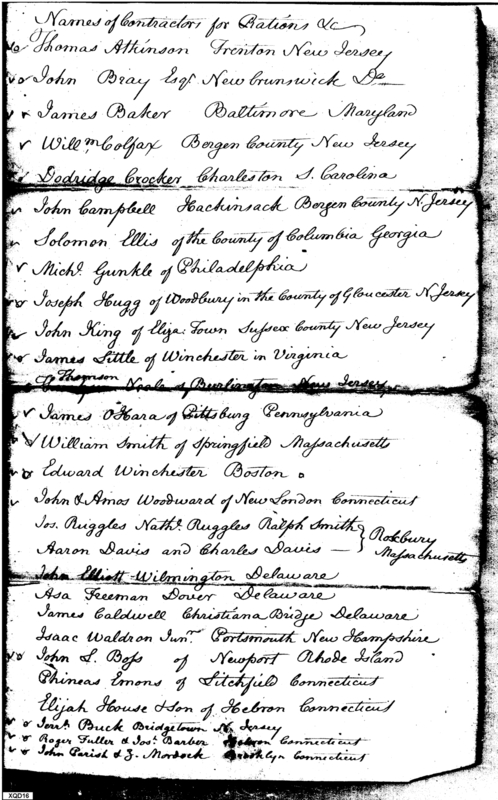 Names of Contractors for Rations &c
Thomas Atkinson Trenton New Jersey
John Bray Esqr. Newbrunswick Do
James Baker Baltimore Maryland
Willm Colfax Bergen County New Jersey
Dodridge Crocker Charleston S. Carolina
John Campbell Hackinsack Bergen County N. Jersey
Solomon Ellis of the County of Columbia Georgia
Michl. Gunkle of Philadelphia
Joseph Hugg of Woodbury in the County of Gloucester N. Jersey
John King of Eliza: Town Sussex County New Jersey
James Little of Winchester in Virginia
Thomson Neale of Burlington New Jersey
James O'Hara of Pittsburg Pennsylvania
William Smith of Springfield Massachusetts
Edward Winchester Boston
John & Amos Woodward of New London Connecticut
Jos. Ruggles Nathl. Ruggles Ralph Smith
Aaron Davis and Charles Davis — } Roxbury Massachusetts
John Elliott Wilmington Delaware
Asa Freeman Dover Delaware
James Caldwell Christiana Bridge Delaware
Isaac Waldron Junr. Portsmouth New Hampshire
John L. Boss of Newport Rhode Island
Phineas Emons of Litchfield Connecticut
Elijah House & Son of Hebron Connecticut
Jerrh. Buck Bridgetown N. Jersey
Roger Fuller & Jos. Barber Hebron Connecticut
John Parish & Z. Mordock Brooklyn Connecticut
XQD16